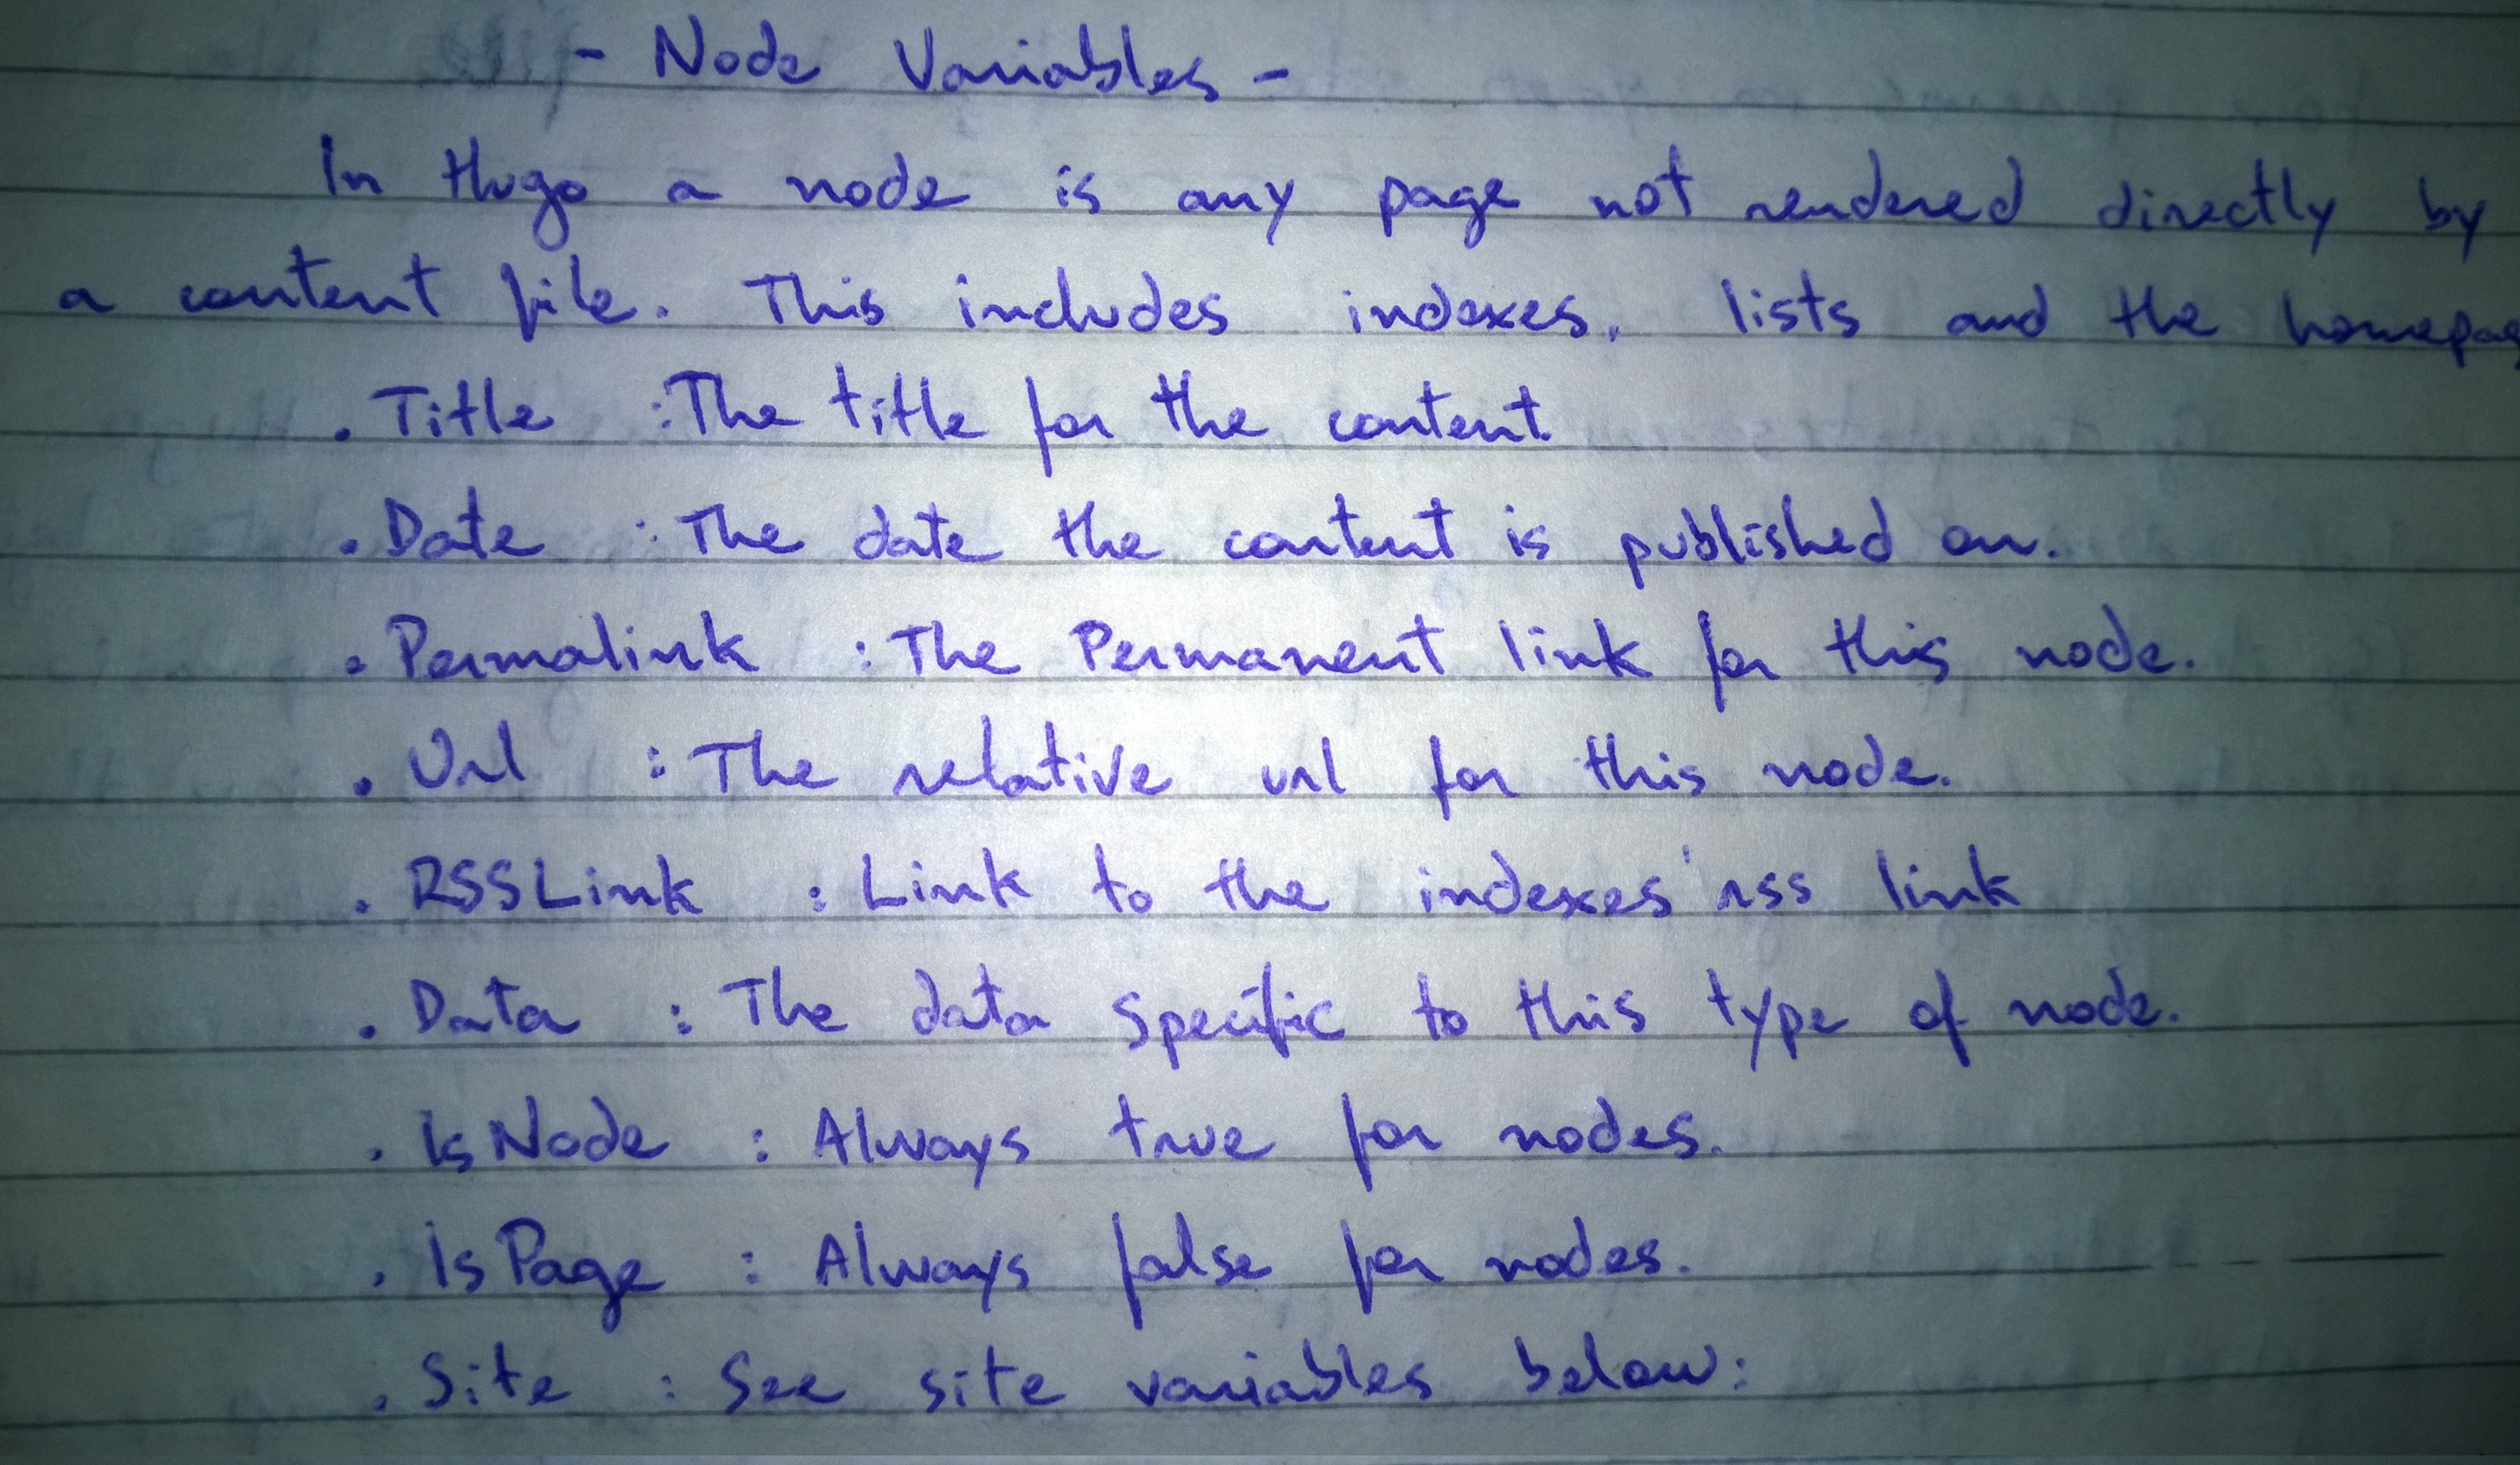 - Node Variables -
In Hugo a node is any page not rendered directly by
a content file. This includes indexes, lists and the homepag
. Title : The title for the content
. Date : The date the content is published on.
. Permalink : The Permanent link for this node.
. Url : The relative url for this node.
. RSSLink : Link to the indexes' rss link
. Data : The data specific to this type of node.
. IsNode : Always true for nodes.
. IsPage : Always false for nodes.
. Site : See site variables below: